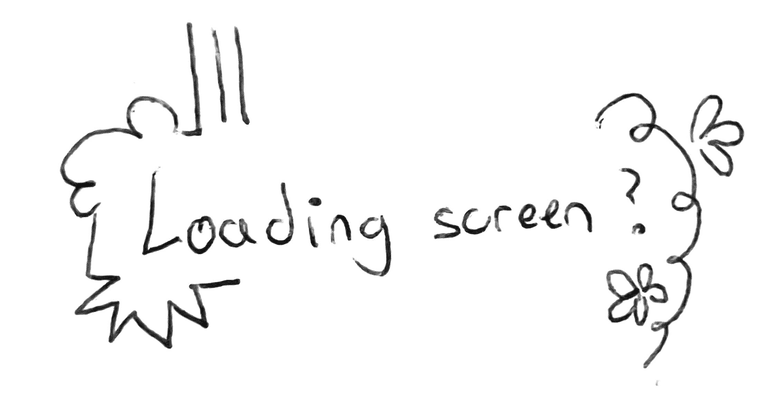 Loading screen ?